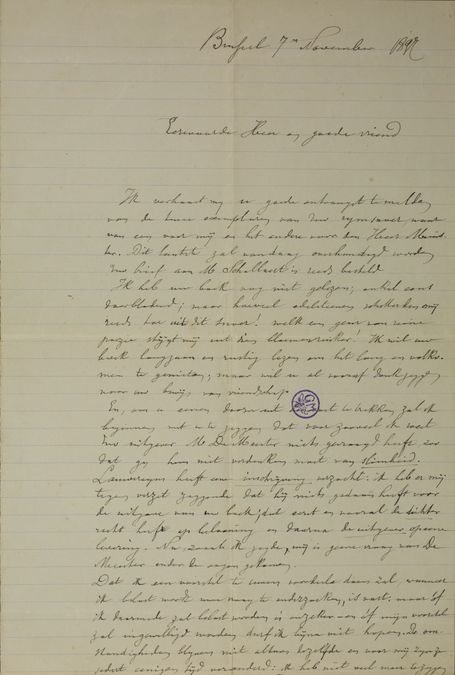 Brussel 7n November 1897
Eerwaarde Heer en goede vriend
Ik verhaast my u goede ontvangst te melden
van de twee exemplaren van Uw rymsnoer waar
van een voor my en het andere voor den Heer Minis
ter. Dit laatste zal vandaag overhandigd worden
Uw brief aan M. Schollaert is reeds besteld
Ik heb uw boek nog niet gelezen; enkel eens
doorbladerd; maar hoeveel edelsteenen schitterden my
reeds toe uit dit snoer! welk een geur van reine
poezie stijgt my uit dien bloemenruiker! Ik wil uw
werk langzaam en rustig lezen om het lang en volko-
men te genieten; maar wil u al vooraf dank zeggen
voor uw bewijs van vriendschap
GM
En, om u eenen doorn uit te trekken zal ik
beginnen met u te zeggen dat voor zooveel ik weet
Uw uitgever M. De Meester niets gevraagd heeft zoo
dat gy hem niet verdenken moet van slimheid.
heeft eene inschryving verzocht: ik heb er mij
tegen verzet zeggende dat hij niets gedaan heeft voor
de uitgave van uw boek; dat eerst en vooral de dichter
recht heeft op belooning en daarna de uitgever
levering. Nu, zooals ik zegde, mij is geene vraag van De
Meester onder de oogen gekomen.
Dat ik een voorstel te uwen voordeele doen zal, wanneer
ik belast wordt uwe vraag te onderzoeken, is vast: maar of
ik daarmede zal belast worden is onzeker en of mijn voorstel
zal ingewilligd worden durf ik bijna niet hopen. De om-
standigheden blyven niet altoos dezelfde en voor mij zyn ze
sedert eenigen tijd veranderd: ik heb niet veel meer te zeggen